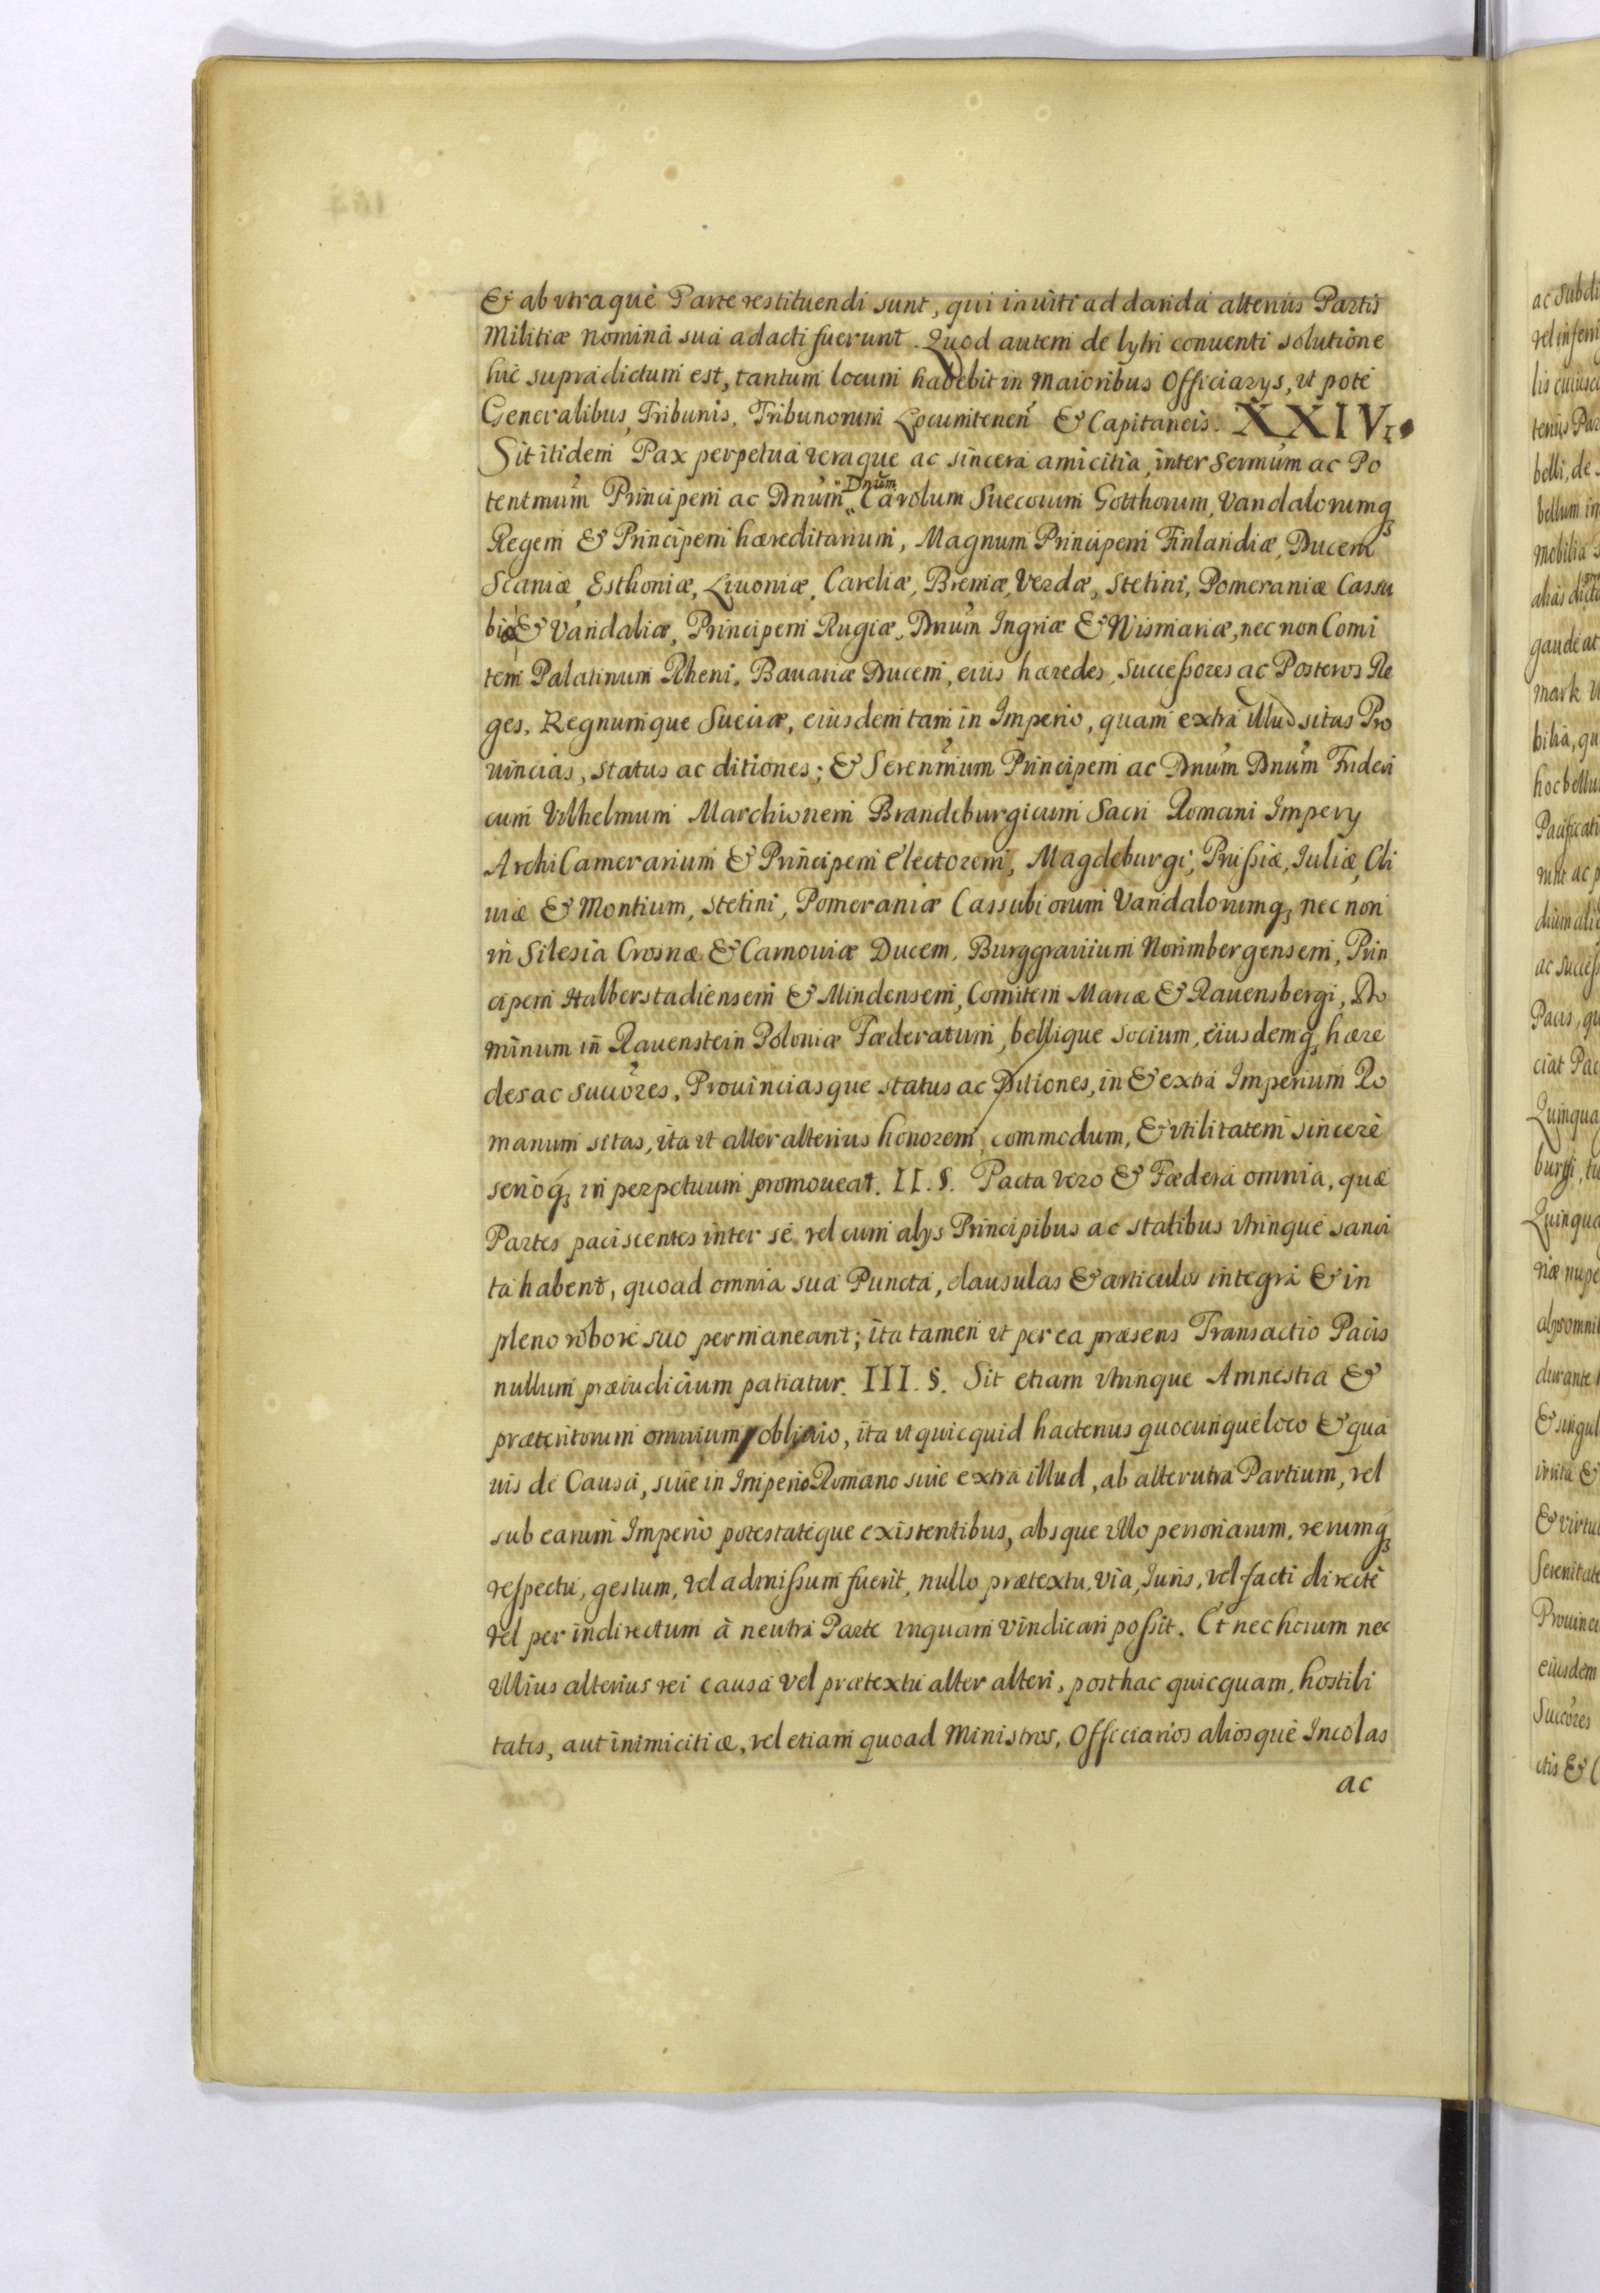 & ab vtraquè Parte restituendi sunt, qui inuiti ad danda alterius Partis
Militiæ nomina sua adacti fuerunt. Quod autem de lytri conuenti solutione
hic supradictum est, tantum locum habebit in Maioribus Officiarys, vt poté
Generalibus, Tribunis, Tribunorum Locumtenen & Capitaneis. XXIV.
Sit itidem Pax perpetua veraque ac sincera amicitia, inter Sermum ac Po
tentmum Principem ac Dnum Dnum Carolum Suecorum Gotthorum, Vandalorumq
Regem & Principem hæreditarium, Magnum Principem Finlandiæ, Ducem
Scaniæ, Esthoniæ, Liuoniæ, Careliæ, Bremæ, Verdæ, Stetini, Pomeraniæ Cassu
biæ & Vandaliæ, Principem Rugiæ, Dnum Ingriæ & Wismariæ, nec non Comi
tem Palatinum Rheni, Bauariæ Ducem, eius hæredes, Successores ac Posteros Re
ges, Regnumque Sueciæ, eiusdem tam in Imperio, quam extra illud sitas Pro
uincias, status ac ditiones; & Serenmum Principem ac Dnum Dnum Frideri
cum Vilhelmum Marchionem Brandeburgicum Sacri Romani Impery
ArchiCamerarium & Principem Electorem, Magdeburgi, Prussiæ, Iuliæ, Cli
uiæ & Montium, Stetini, Pomeraniæ Cassubiorum Vandalorumq, nec non
in Silesia Crosnæ & Carnouiæ Ducem, Burggrauium Norimbergensem, Prin
cipem Halberstadiensem & Mindensem, Comitem Marcæ & Rauensbergi, Do
minum in Rauenstein Poloniæ Fæderatum, bellique socium, eiusdemq hære
des ac succores, Prouinciasque status ac Ditiones, in & extra Imperium Ro
manum sitas, ita vt alter alterius honorem, commodum, & vtilitatem sincere
serioq in perpetuum promoueat. II. §. Pacta vero & Fædera omnia, quæ
Partes paciscentes inter se vel cum alys Principibus ac statibus vtrinque sanci
ta habent, quoad omnia sua Puncta, clausulas & articulos integra & in
pleno robore suo permaneant; ita tamen vt per ea præsens Transactio Pacis
nullum præiudicium patiatur. III. §. Sit etiam vtrinque Amnestia &
præteritorum omnium obliuio, ita vt quicquid hactenus quocunque loco & qua
uis de Causa, siue in Imperio Romano siue extra illud, ab alterutra Partium, vel
sub earum Imperio potestateque existentibus, absque vllo personarum, rerumq
respectu, gestum, vel admissum fuerit, nullo prætextu, via, Iuris, vel facti directè
vel per indirectum à neutra Parte inquam vindicari possit. Et nec horum nec
vllius alterius rei causa vel prætextu alter alteri, posthac quicquam, hostili
tatis, aut inimicitiæ, vel etiam quoad Ministros, Officiarios aliosquè Incolas
ac